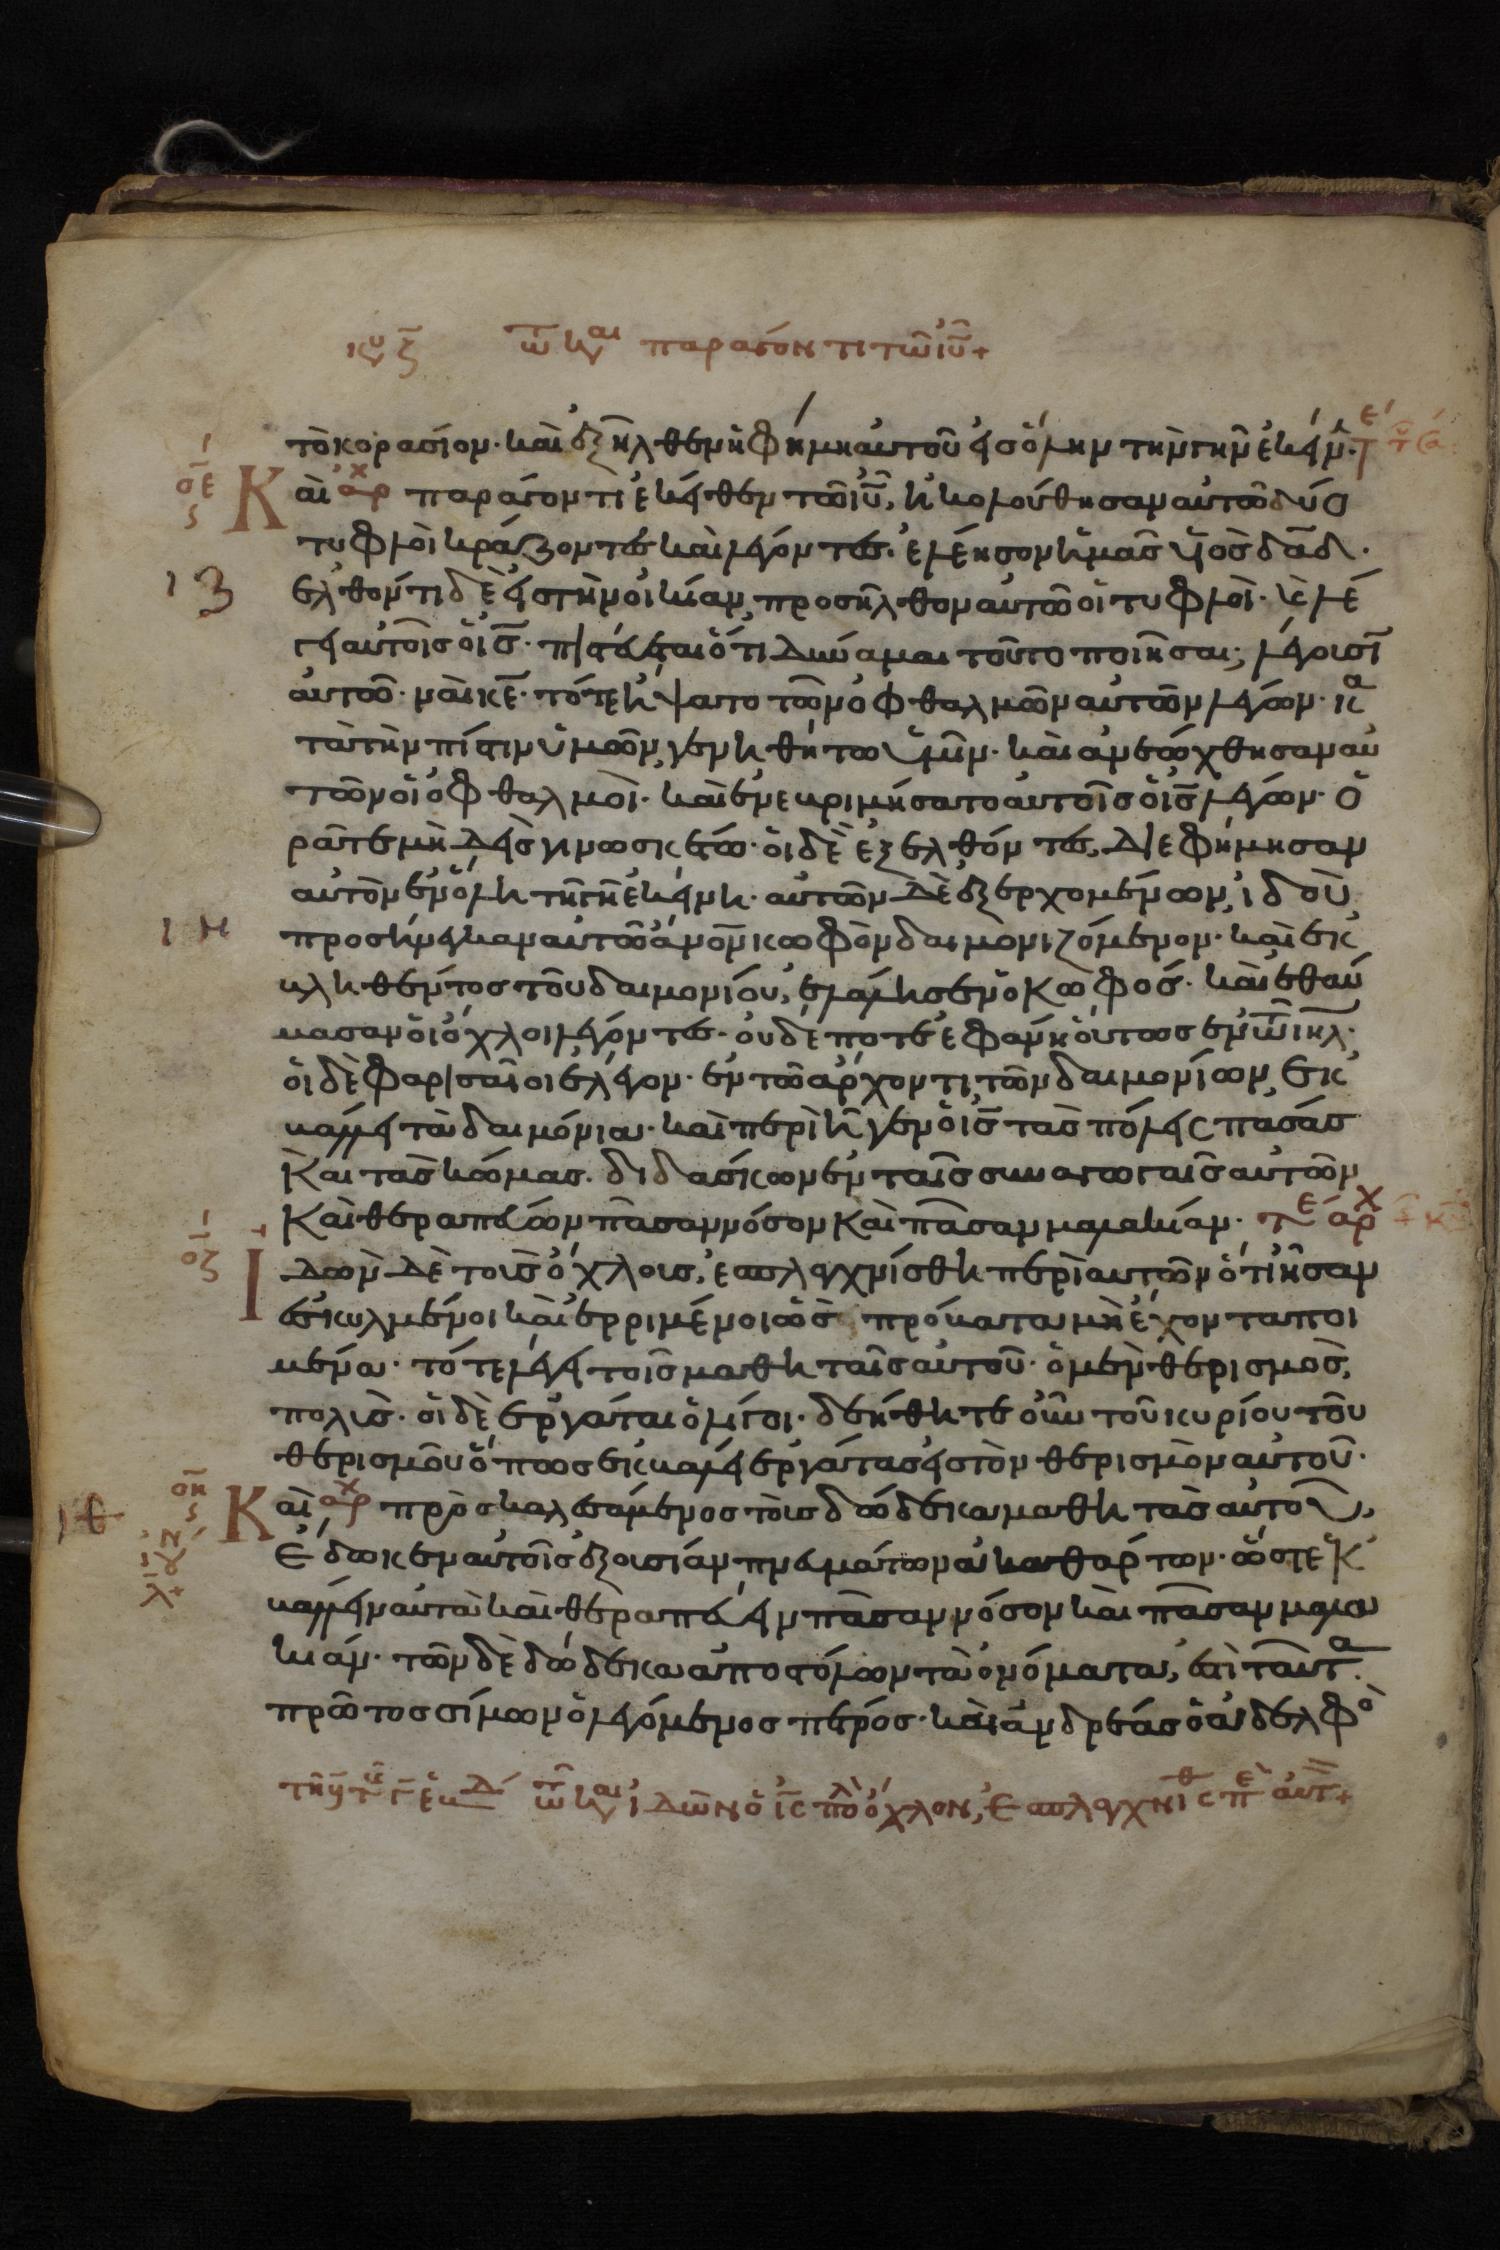 κυ ζ τῶ κ αι παραγόντι τῶ ἰῦ +
τὸ κοράσιον· καὶ ἐξῆλθεν ἡ φήμη αὐτοῦ εἰς ὅλην τὴν γῆν ἐκείν
Καὶ αρχ παράγοντι ἐκεῖθεν τῶ ἰῦ, ἠκολούθησαν αὐτῶ δύο
τυφλοὶ κράζοντες καὶ λέγοντες· ἐλέησον ἡμᾶς υἱὸς δᾱδ·
ιζ ἐλθόντι δὲ εἰς τὴν οἰκίαν, προσῆλθον αὐτῶ οἱ τυφλοὶ· κ̀ λέ
γει αὐτοῖς ὁ ἰς̄· πιστεύεται ὅτι δύναμαι τοῦτο ποιῆσαι; λέγουσιν
αὐτῶ· ναὶ κε̄· τότε ἥψατο τῶν ὀφθαλμῶν αὐτῶν λέγων· κα
τὰ τὴν πίστιν ὑμῶν, γενηθήτω ὑμῖν· καὶ ἀνεώχθησαν αὐ
τῶν οἱ ὀφθαλμοὶ· καὶ ἐνεβριμήσατο αὐτοῖς ὁ ἰς̄ λέγων· ὁ
ρᾶτε μὴ δεὶς γινωσκέτω· οἱ δὲ ἐξελθόντες, διεφήμησαν
αὐτὸν ἐν ὅλη τῆ γῆ ἐκείνη· αὐτῶν δὲ ἐξερχομένων, ἰδοὺ
ιη προσήνεγκαν αὐτῶ ἄνον̄ κωφὸν δαιμονιζόμενον· καὶ ἐκ
βληθέντος τοῦ δαιμονίου, ἐλάλησεν ὁ κωφός· καὶ ἐθαύ
μασαν οἱ ὄχλοι λέγοντες· οὐδέποτε ἐφάνη οὕτως ἐν τῶ ἰηλ̄·
οἱ δὲ φαρισαῖοι ἔλεγον· ἐν τῶ ἄρχοντι τῶν δαιμονίων, ἐκ
βάλλει τὰ δαιμόνια· καὶ περιῆγεν ὁ ἰς̄ τὰς πόλεις πάσας
Καὶ τὰς κώμας· διδάσκων ἐν ταῖς συναγωγαῖς αὐτῶν
Καὶ θεραπεύων πᾶσαν νόσον καὶ πᾶσαν μαλακίαν· τε αρχ
οζ Ἰδὼν δὲ τοῖς ὄχλοις, ἐσπλαγχνίσθη περὶ αὐτῶν ὅτι ἦσαν
ἐσκυλμένοι καὶ ἐρριμένοι ὡς πρόβατα μὴ ἔχοντα ποι
μένα· τότε λέγει τοῖς μαθηταῖς αὐτοῦ· ὁ μὲν θερισμὸς,
πολὺς· οἱ δὲ ἐργάται ὀλίγοι· δεήθητε οὖν τοῦ κυρίου τοῦ
θερισμοῦ ὅπως ἐκβάλη ἐργάτας εἰς τὸν θερισμὸν αὐτοῦ·
ιθ οη Καὶ αρχ προσκαλεσάμενος τοὺς δώδεκα μαθητὰς αὐτοῦ,
Ἔδωκεν αὐτοῖς ἐξουσίαν πνευμάτων ἀκαθάρτων· ὥστε ἐκ
βάλλειν αὐτὰ καὶ θεραπεύειν πᾶσαν νόσον καὶ πᾶσαν μαλα
κίαν· τῶν δὲ δώδεκα ἀποστόλων τὰ ὀνόματα, ἐστὶ ταῦτα·
πρῶτος σίμων ὁ λεγόμενος πέτρος· καὶ ἀνδρέας ὁ ἀδελφὸ
τῶ κ αι ἰδὼν ὁ ἰς πολ ὄχλον, ἐσπλαγχνίσθ πε αὐτ +